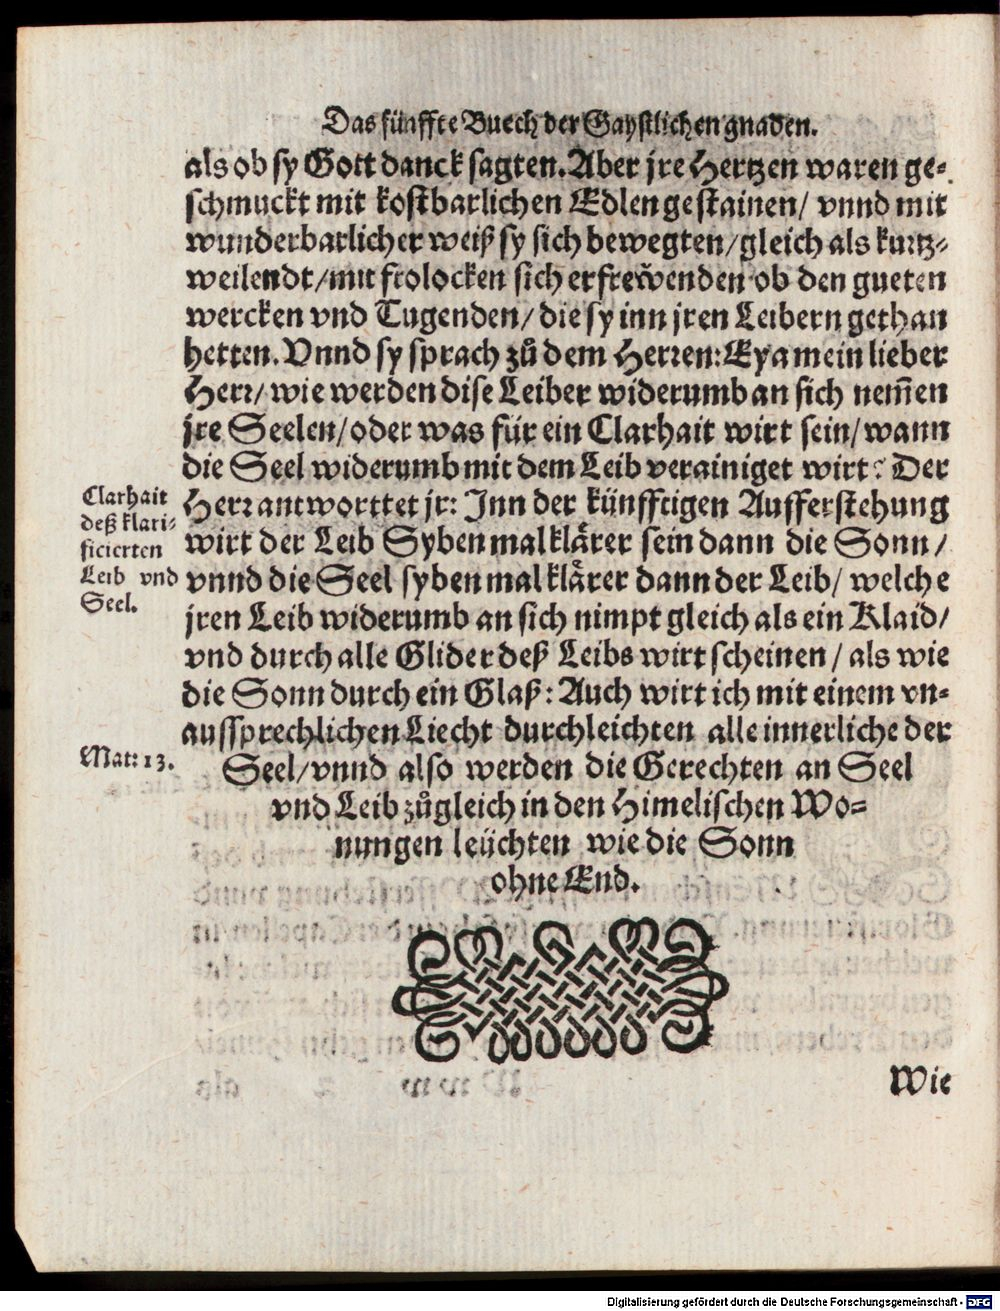 Das fünffte Buech der Gaystlichen gnaden.
als ob sy Gott danck sagten. Aber jre Hertzen waren ge-
schmuckt mit kostbarlichen Edlen gestainen/ vnnd mit
wunderbarlicher weiß sy sich bewegten/ gleich als kurtz-
weilendt/ mit frolocken sich erfrewenden ob den gueten
wercken vnd Tugenden/ die sy inn jren Leibern gethan
hetten. Vnnd sy sprach zů dem Herren: Eya mein lieber
Herr/ wie werden dise Leiber widerumb an sich nem̃en
jre Seelen/ oder was für ein Clarhait wirt sein/ wann
die Seel widerumb mit dem Leib verainiget wirt? Der
Herr antworttet jr: Inn der künfftigen Aufferstehung
wirt der Leib Syben mal klärer sein dann die Sonn/
vnnd die Seel syben mal klärer dann der Leib/ welche
jren Leib widerumb an sich nimpt gleich als ein Klaid/
vnd durch alle Glider deß Leibs wirt scheinen/ als wie
die Sonn durch ein Glaß: Auch wirt ich mit einem vn-
aussprechlichen Liecht durchleichten alle innerliche der
Seel/ vnnd also werden die Gerechten an Seel
vnd Leib zůgleich in den Himelischen Wo-
nungen leüchten wie die Sonn
ohne End.
Clarhait
deß klari-
ficierten
Leib vnd
Seel.
Mat: 13.
Wie
Digitalisierung gefördert durch die Deutsche Forschungsgemeinschaft - DFG